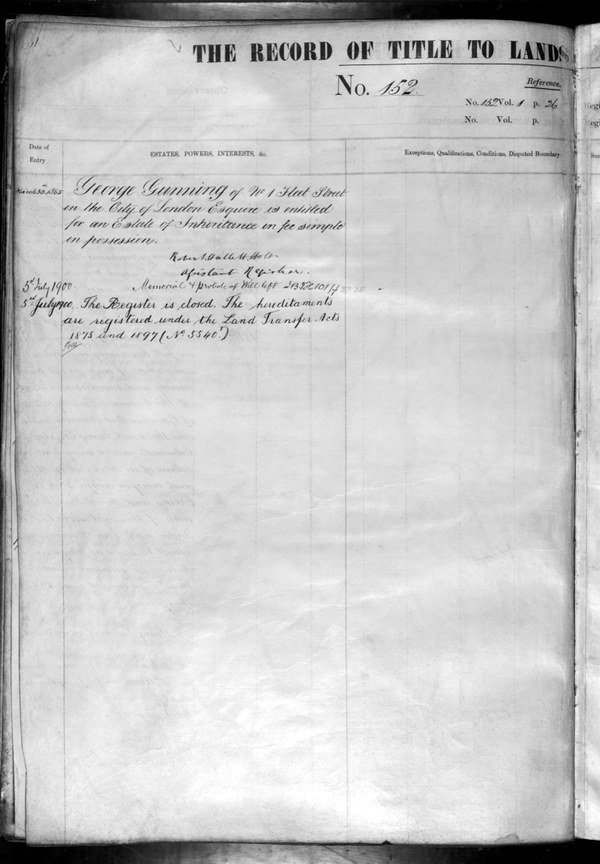 THE RECORD OF TITLE TO LANDS
No. 152
Reference.
No. 152 Vol. 1 p. 26
No. Vol. p.
Date of
Entry
ESTATES, POWERS, INTERESTS, &c.
Exceptions, Qualifications, Conditions, Disputed Boundary
March 30, 1865
George Gunning of No 1 Fleet Street
in the City of London Esquire is entitled
for an Estate of Inheritance in fee simple
in possession.
Robert Hallett Holt
Assistant Registrar.
5th July 1900 Memorial & probate of Will
5th July 1900. The Register is closed. The hereditaments
are registered under the Land Transfer Acts
1875 and 1897 (No 5540)